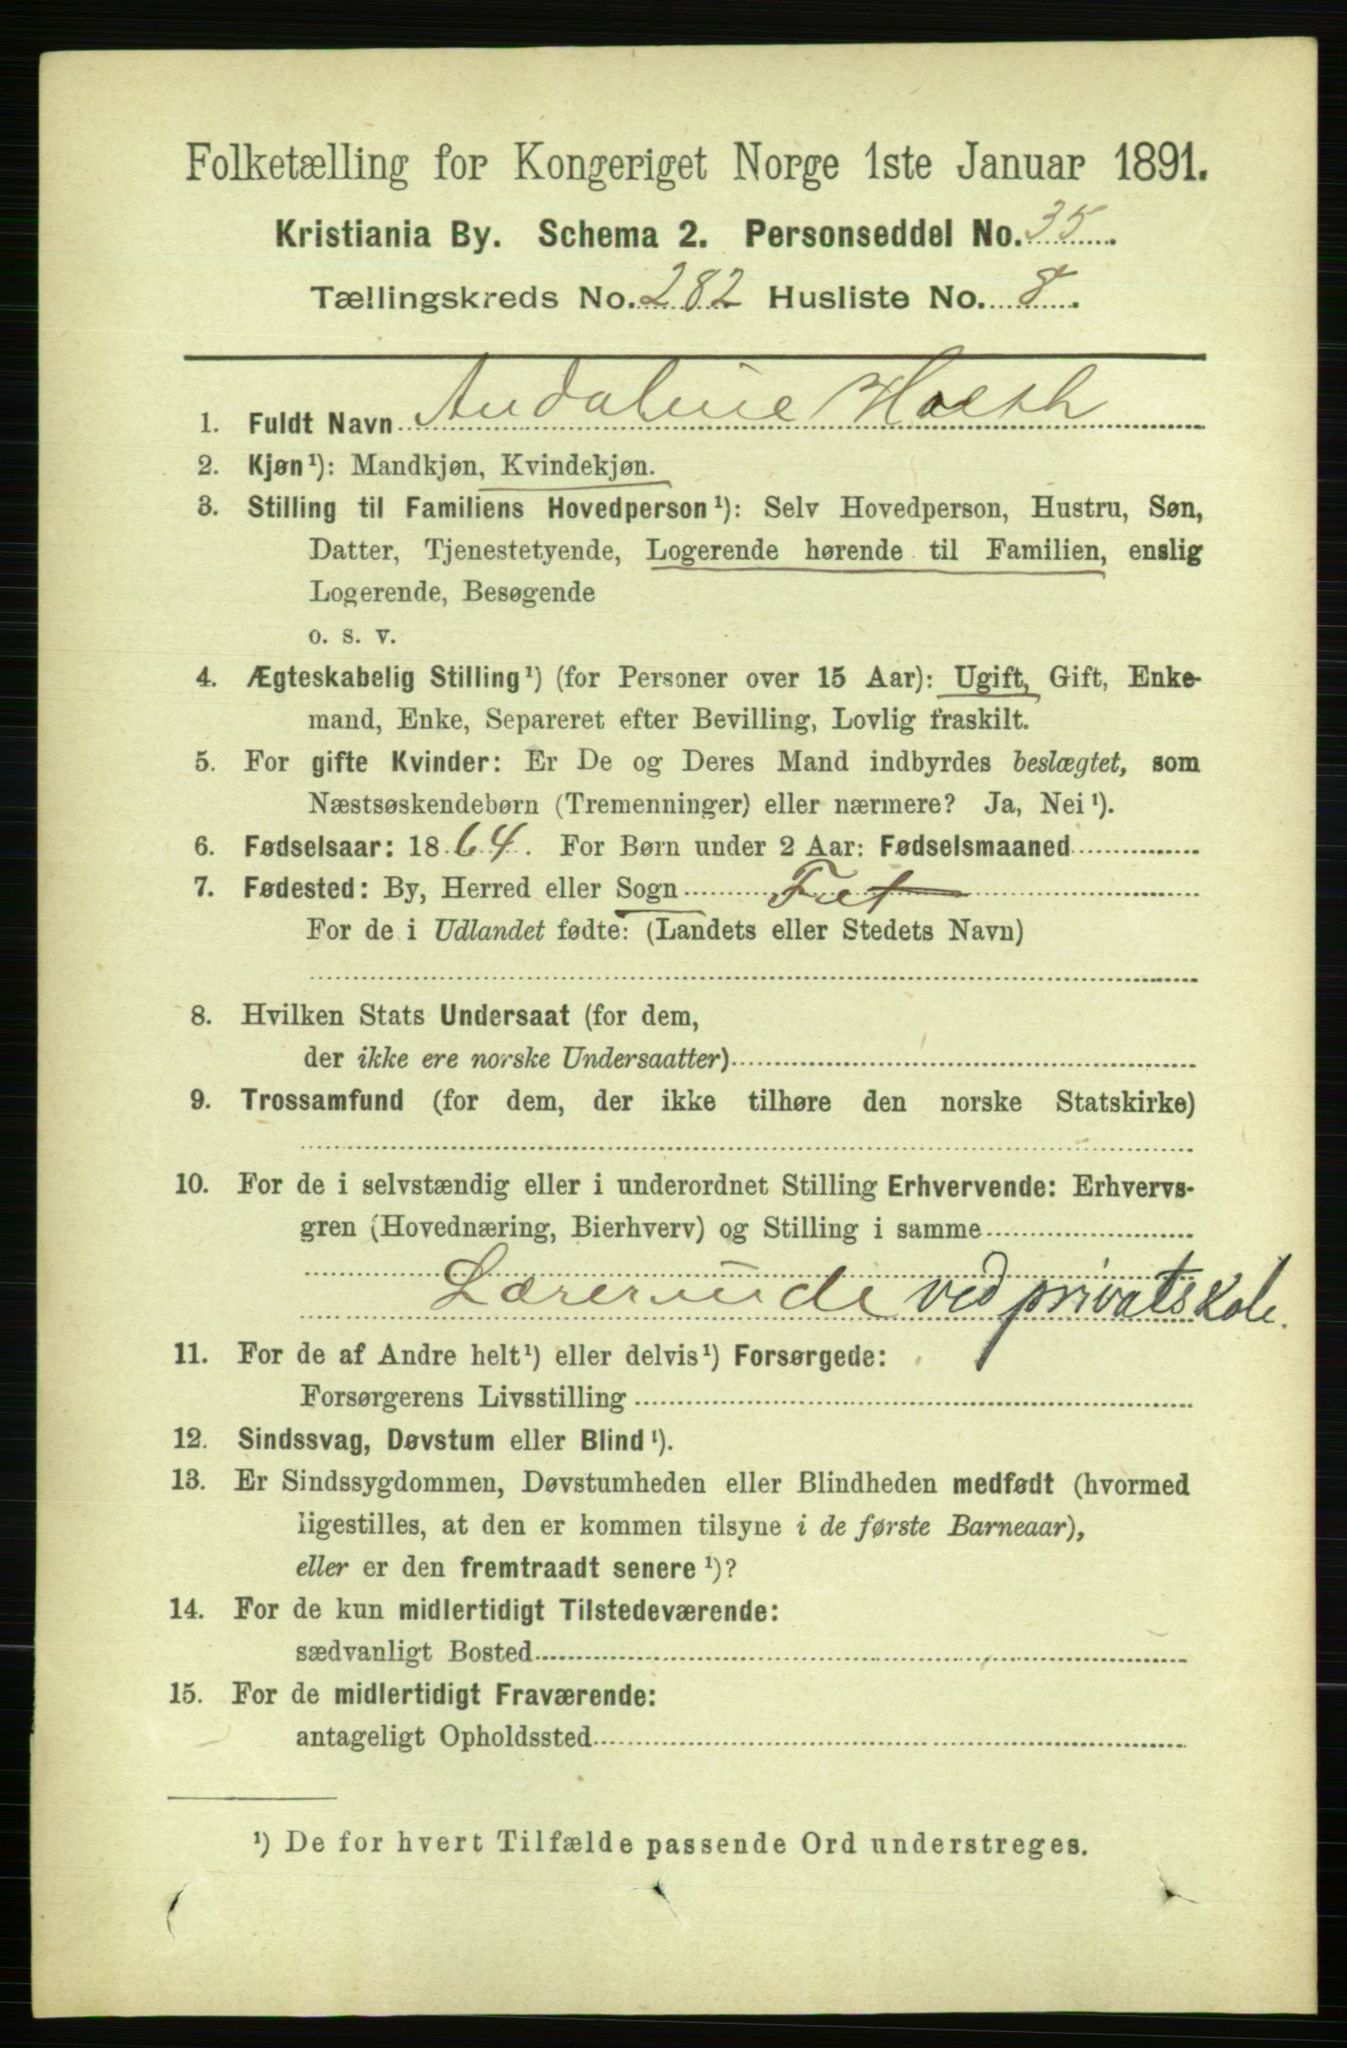 Folketælling for Kongeriget Norge 1ste Januar 1891.
Kristiania By. Schema 2. Personseddel No. 35.
Tællingskreds No. 282 Husliste No. 8.
1. Fuldt Navn Andaline Holth
2. Kjøn¹): Mandkjøn, Kvindekjøn.
3. Stilling til Familiens Hovedperson¹): Selv Hovedperson, Hustru, Søn,
Datter, Tjenestetyende, Logerende hørende til Familien, enslig
Logerende, Besøgende
o. s. v.
4. Ægteskabelig Stilling¹) (for Personer over 15 Aar): Ugift, Gift, Enke-
mand, Enke, Separeret efter Bevilling, Lovlig fraskilt.
5. For gifte Kvinder: Er De og Deres Mand indbyrdes beslægtet, som
Næstsøskendebørn (Tremenninger) eller nærmere? Ja, Nei¹).
6. Fødselsaar: 1864. For Børn under 2 Aar: Fødselsmaaned
7. Fødested: By, Herred eller Sogn Fet
For de i Udlandet fødte: (Landets eller Stedets Navn)
8. Hvilken Stats Undersaat (for dem,
der ikke ere norske Undersaatter)
9. Trossamfund (for dem, der ikke tilhøre den norske Statskirke)
10. For de i selvstændig eller i underordnet Stilling Erhvervende: Erhvervs-
gren (Hovednæring, Bierhverv) og Stilling i samme
Lærerinde ved privatskole.
11. For de af Andre helt¹) eller delvis¹) Forsørgede:
Forsørgerens Livsstilling
12. Sindssvag, Døvstum eller Blind¹).
13. Er Sindssygdommen, Døvstumheden eller Blindheden medfødt (hvormed
ligestilles, at den er kommen tilsyne i de første Barneaar),
eller er den fremtraadt senere¹)?
14. For de kun midlertidigt Tilstedeværende:
sædvanligt Bosted
15. For de midlertidigt Fraværende:
antageligt Opholdssted
¹) De for hvert Tilfælde passende Ord understreges.